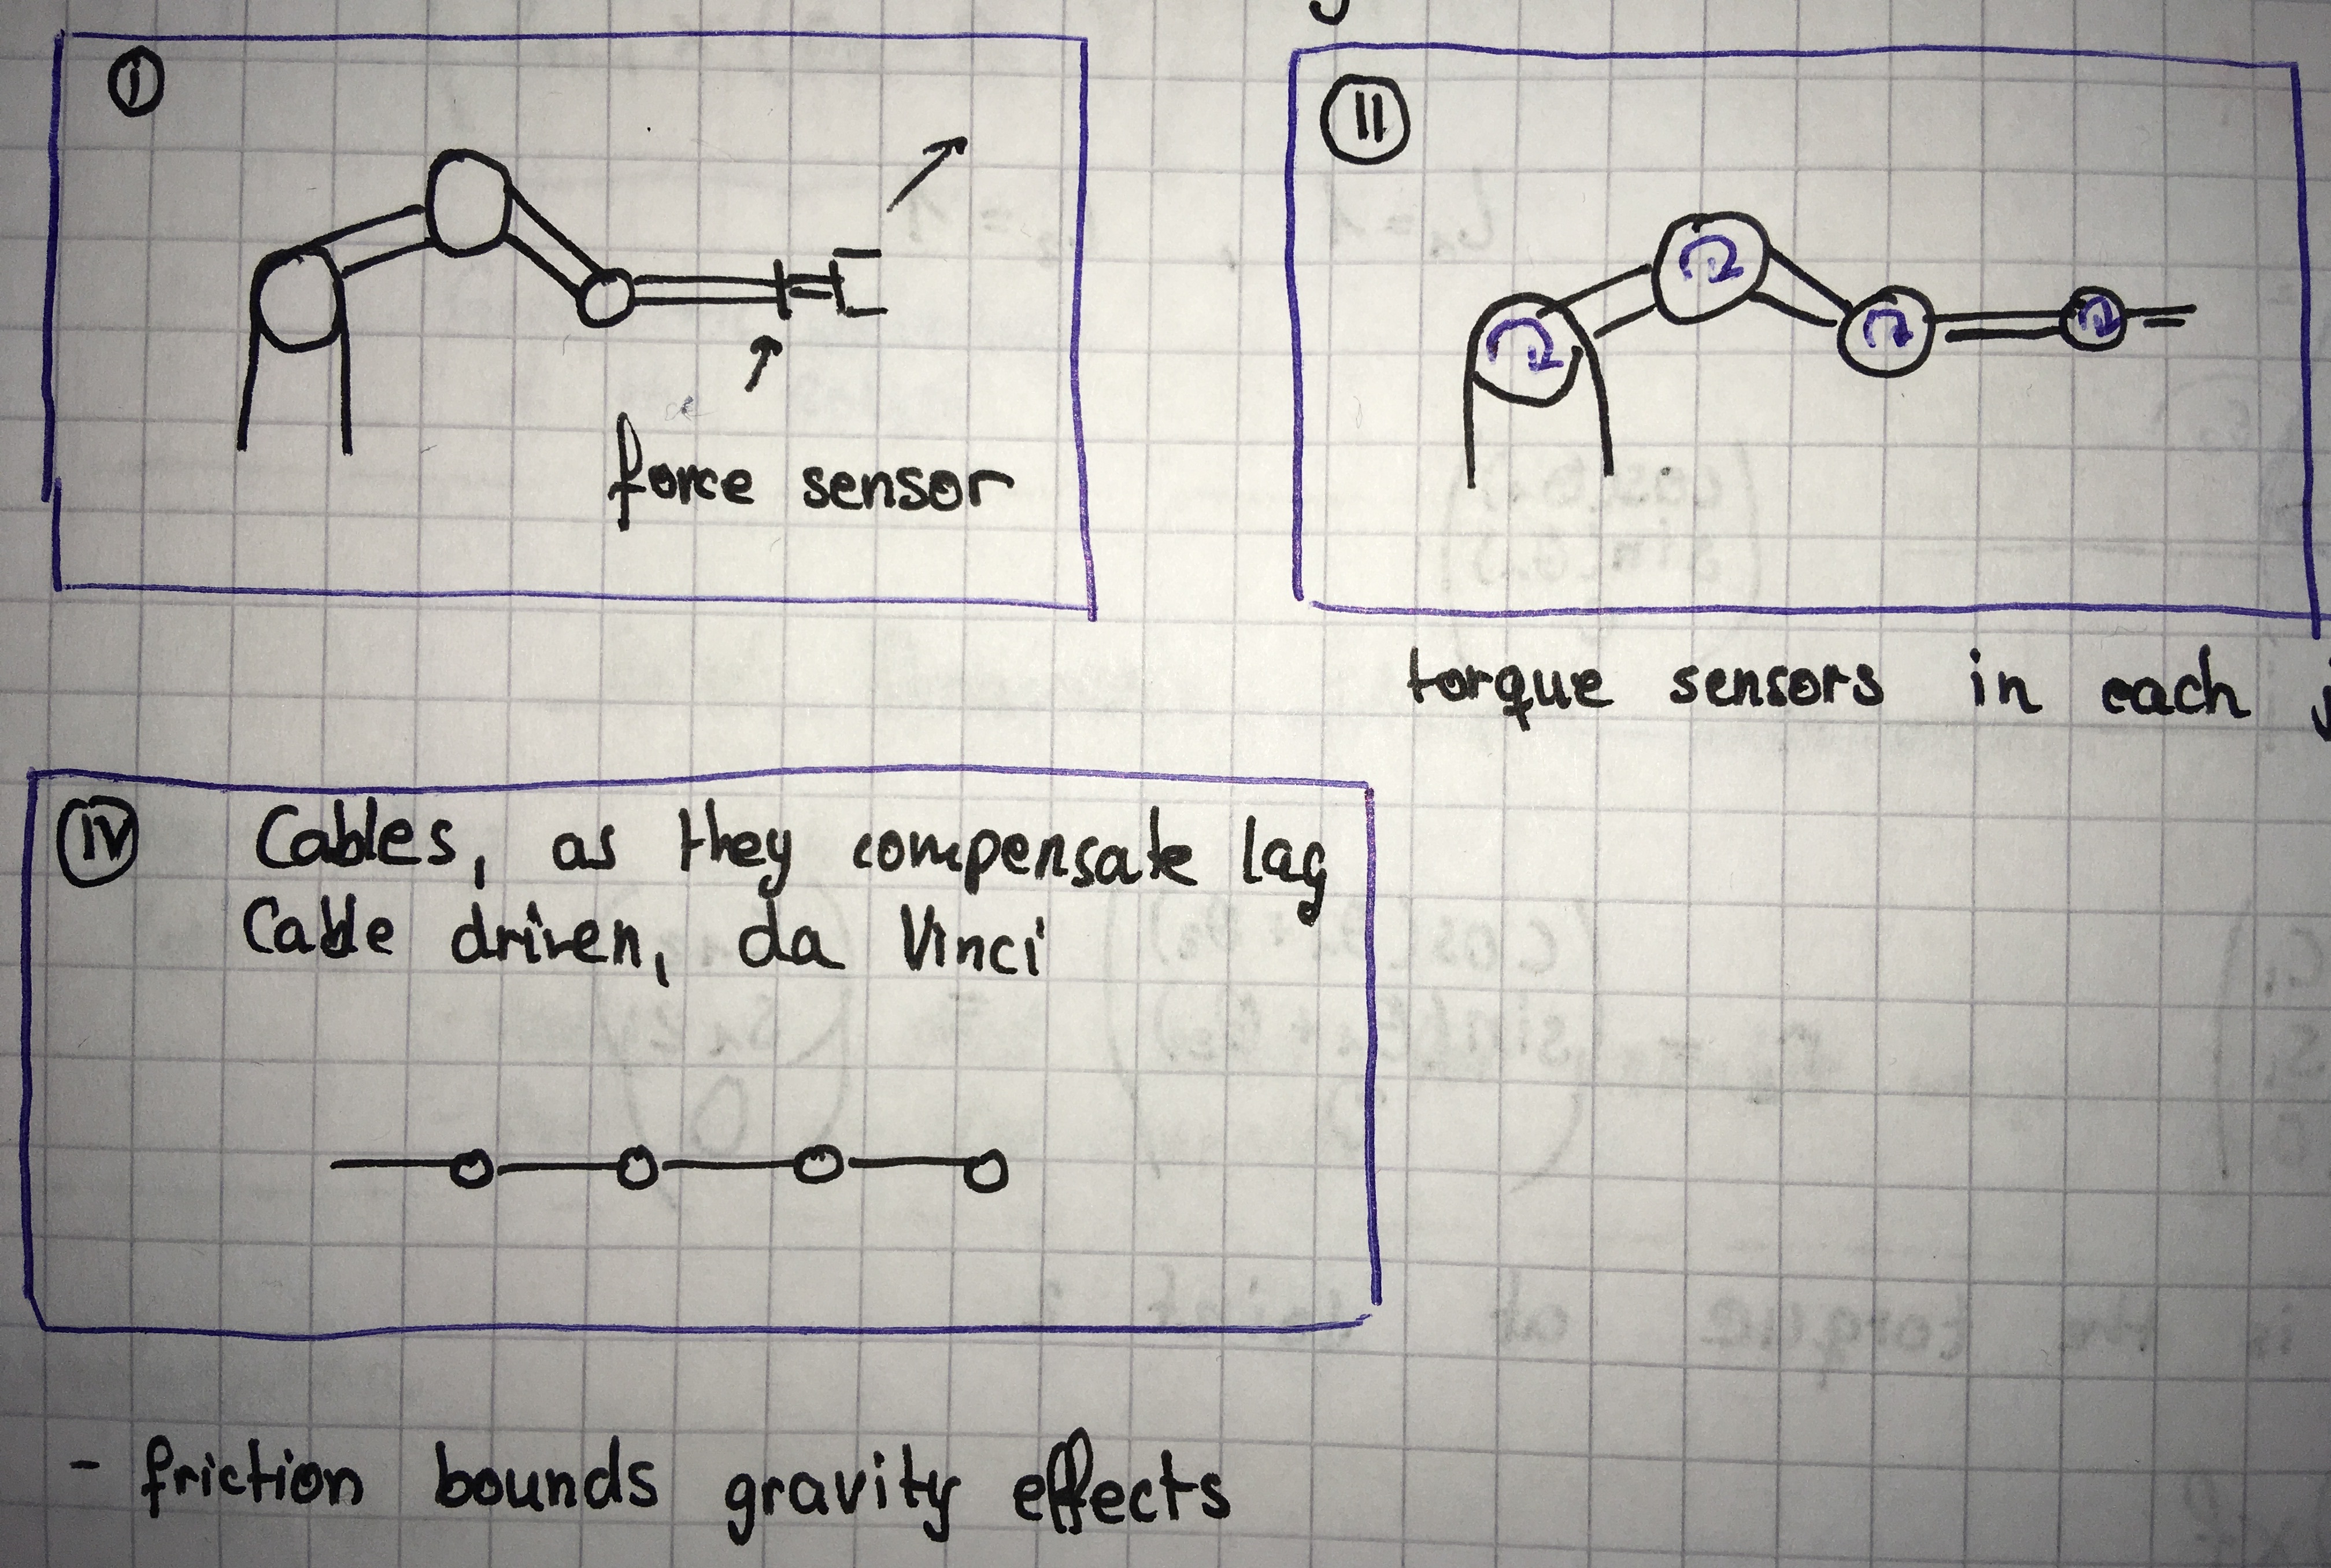 I
force sensor
II
torque sensors in each
IV
Cables, as they compensate lag
Cable driven, da Vinci
- friction bounds gravity effects